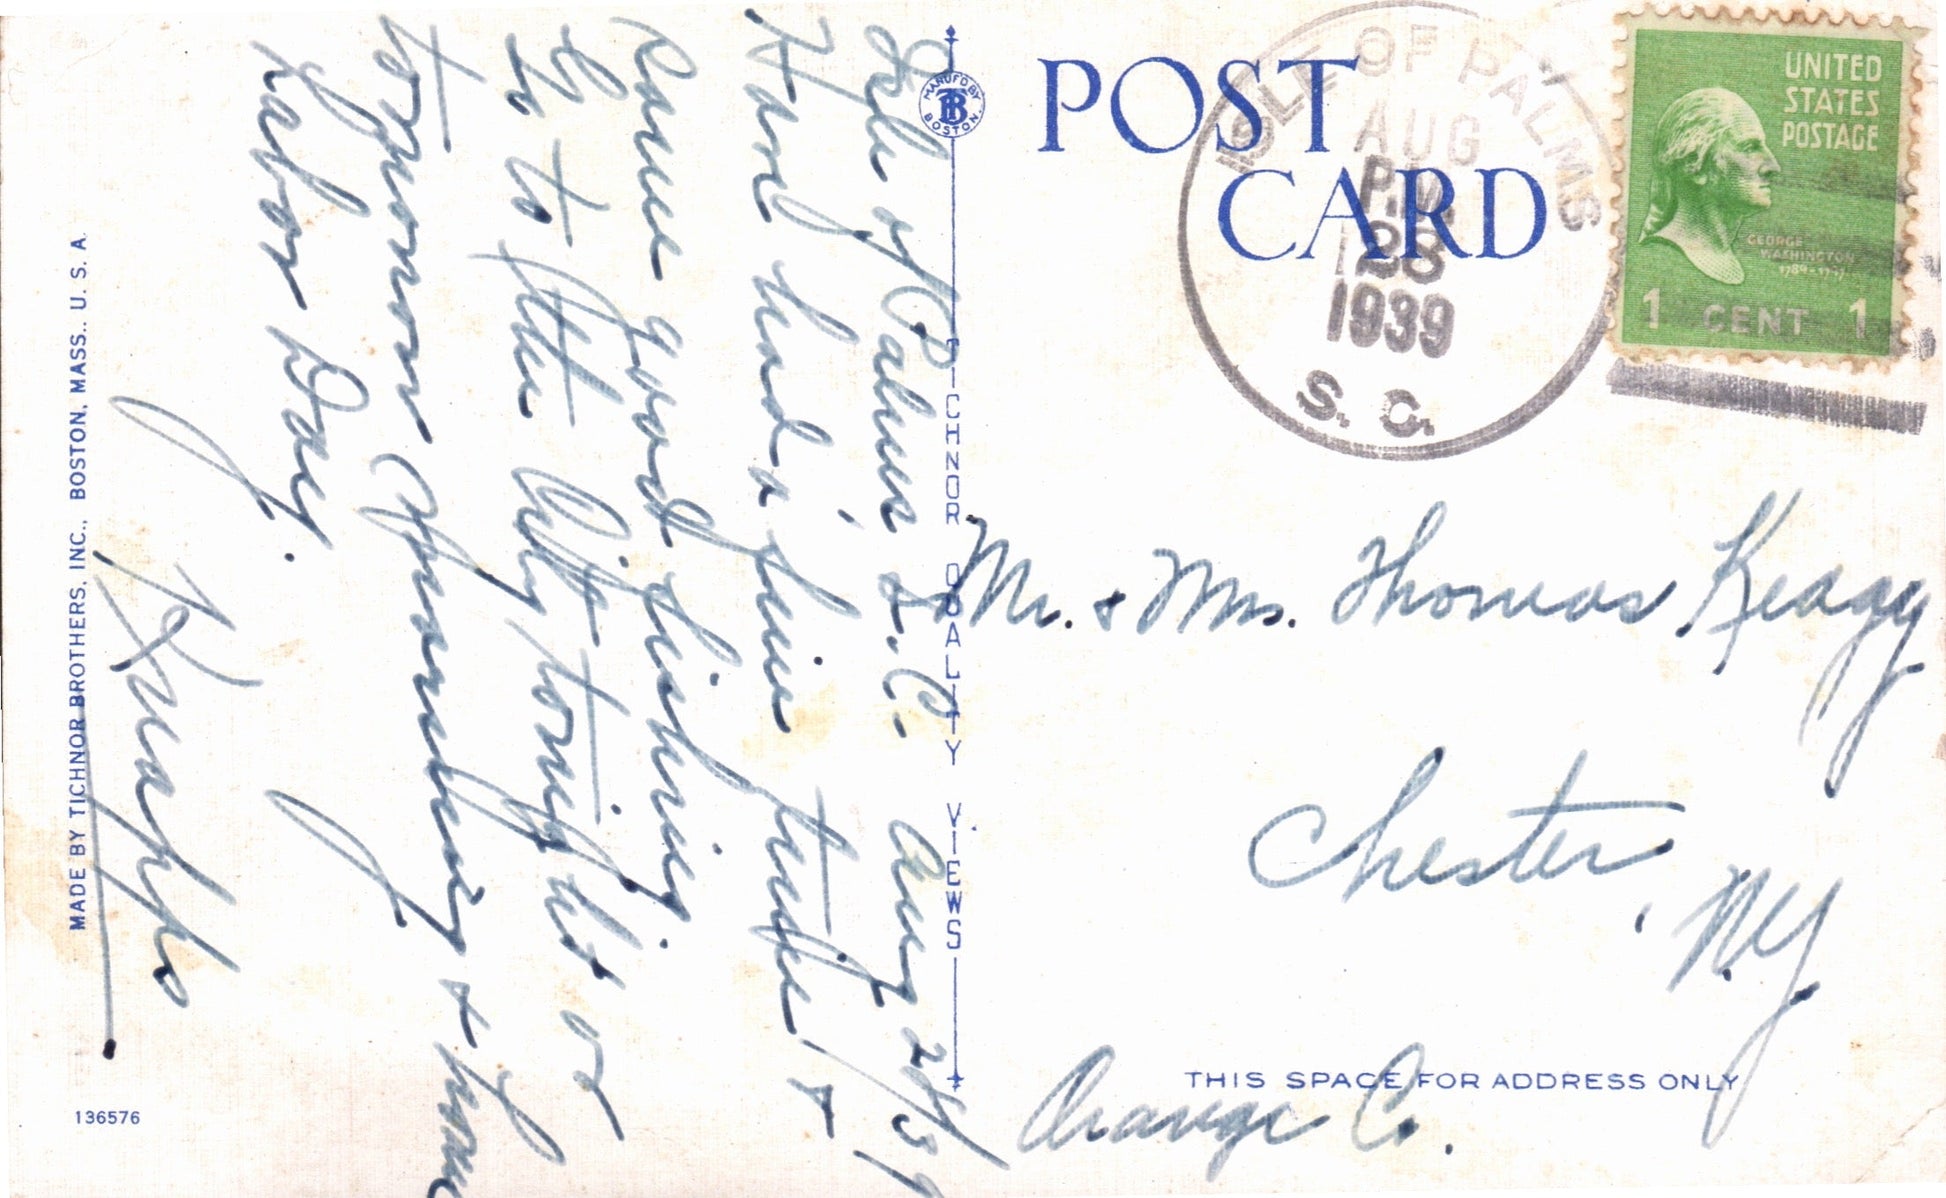 Isle of Palms S.C. Aug 28/39
Have had a fine time &
Some good fishing.
Go to the City tonight or
tomorrow morning & home
Labor Day.
Knapps
MADE BY TICHNOR BROTHERS, INC., BOSTON, MASS., U. S. A.
136576
MANUF'D BY
TB
BOSTON.
TICHNOR QUALITY VIEWS
POST
CARD
ISLE OF PALMS
AUG
P.M.
28
1939
S. C.
UNITED
STATES
POSTAGE
GEORGE
WASHINGTON
1789-1797
1 CENT 1
Mr. & Mrs. Thomas Keagy
Chester, N.Y.
THIS SPACE FOR ADDRESS ONLY
Orange Co.